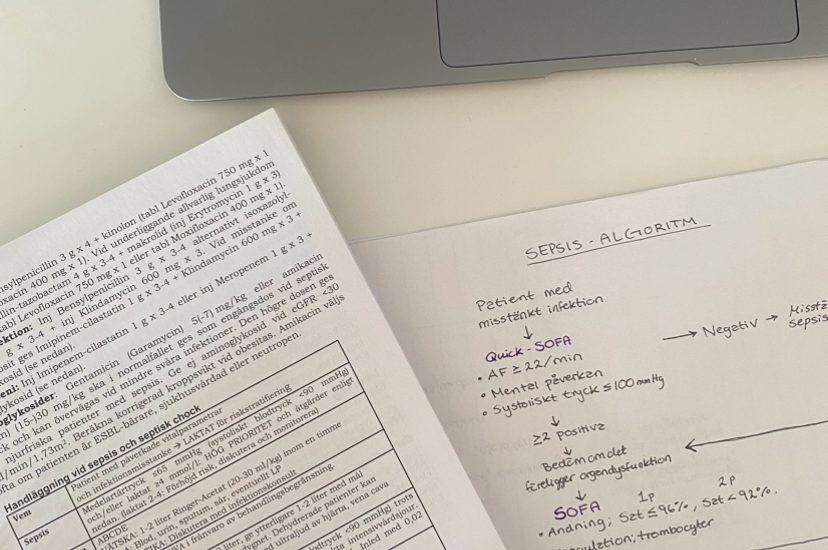 nsylpenicillin 3 g x 4 + kinolon (tabl Levofloxacin 750 mg x 1
oxacin 400 mg x 1). Vid underliggande allvarlig lungsjukdom
llin-tazobactam 4 g x 3-4 + makrolid (inj Erytromycin 1 g x 3)
tabl Levofloxacin 750 mg x 1 eller tabl Moxifloxacin 400 mg x 1).
ektion: Inj Bensylpenicillin 3 g x 3-4 alternativt isoxazolyl-
g x 3-4 + inj Klindamycin 600 mg x 3. Vid misstanke om
osit ges Imipinem-cilastatin 1 g x 3-4 + Klindamycin 600 mg x 3 +
kosid (se nedan).
eni: Inj Imipenem-cilastatin 1 g x 3-4 eller inj Meropenem 1 g x 3 +
glykosid (se nedan).
oglykosider: Gentamicin (Garamycin) 5(-7) mg/kg eller amikacin
n) (15-)30 mg/kg ska i normalfallet ges som engångsdos vid septisk
ck och kan övervägas vid mindre svåra infektioner. Den högre dosen ges
njurfriska patienter med sepsis. Ge ej aminoglykosid vid eGFR <30
l/min/1,73m². Beräkna korrigerad kroppsvikt vid obesitas. Amikacin väljs
ofta om patienten är ESBL-bärare, sjukhusvårdad eller neutropen.
Handläggning vid sepsis och septisk chock
Vem
Patient med påverkade vitalparametrar
och infektionsmisstanke → LAKTAT för riskstratifiering
Sepsis
Medelartärtryck ≤65 mmHg (systoliskt blodtryck <90 mmHg)
och/eller laktat ≥4 mmol/l: HÖG PRIORITET och åtgärder enligt
nedan. (laktat 2-4: Förhöjd risk, diskutera och monitorera)
ABCDE
VÄTSKA: 1-2 liter Ringer-Acetat (20-30 ml/kg) inom en timme
Blod, urin, sputum, sår, eventuellt LP
Diskutera med infektionskonsult
i frånvaro av behandlingsbegränsning.
liter, ge ytterligare 1-2 liter med mål
dygnet. Dehydrerade patienter kan
ultraljud av hjärta, vena cava
blodtryck <90 mmHg trots
intensivvårdsjour.
Inled med 0,02
SEPSIS - ALGORITM
Patient med
misstänkt infektion
↓
Quick-SOFA
• AF ≥ 22/min
• Mental påverkan
• Systoliskt tryck ≤ 100 mmHg
→ Negativ →
sepsis
↓
≥2 positiva
↓
Bedöm om det
föreligger organdysfunktion
↓
SOFA 1p 2p
• Andning; Szt ≤ 96%, Szt < 92%.
trombocyter